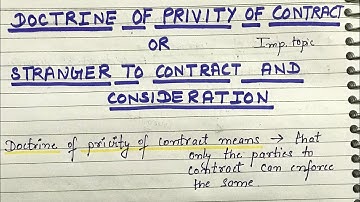 DOCTRINE OF PRIVITY OF CONTRACT
OR
Imp. topic
STRANGER TO CONTRACT AND
CONSIDERATION
Doctrine of privity of contract means → that
only the parties to
contract can enforce
the same.